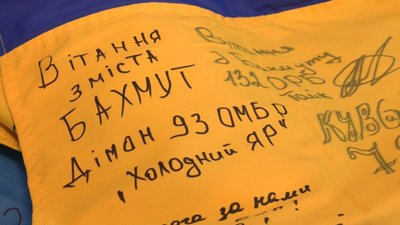 Вітання
з міста
БАХМУТ
Діман 93 ОМБр
"Холодний Яр"
Вітання
з Бахмуту
132 ОРБ
за нами